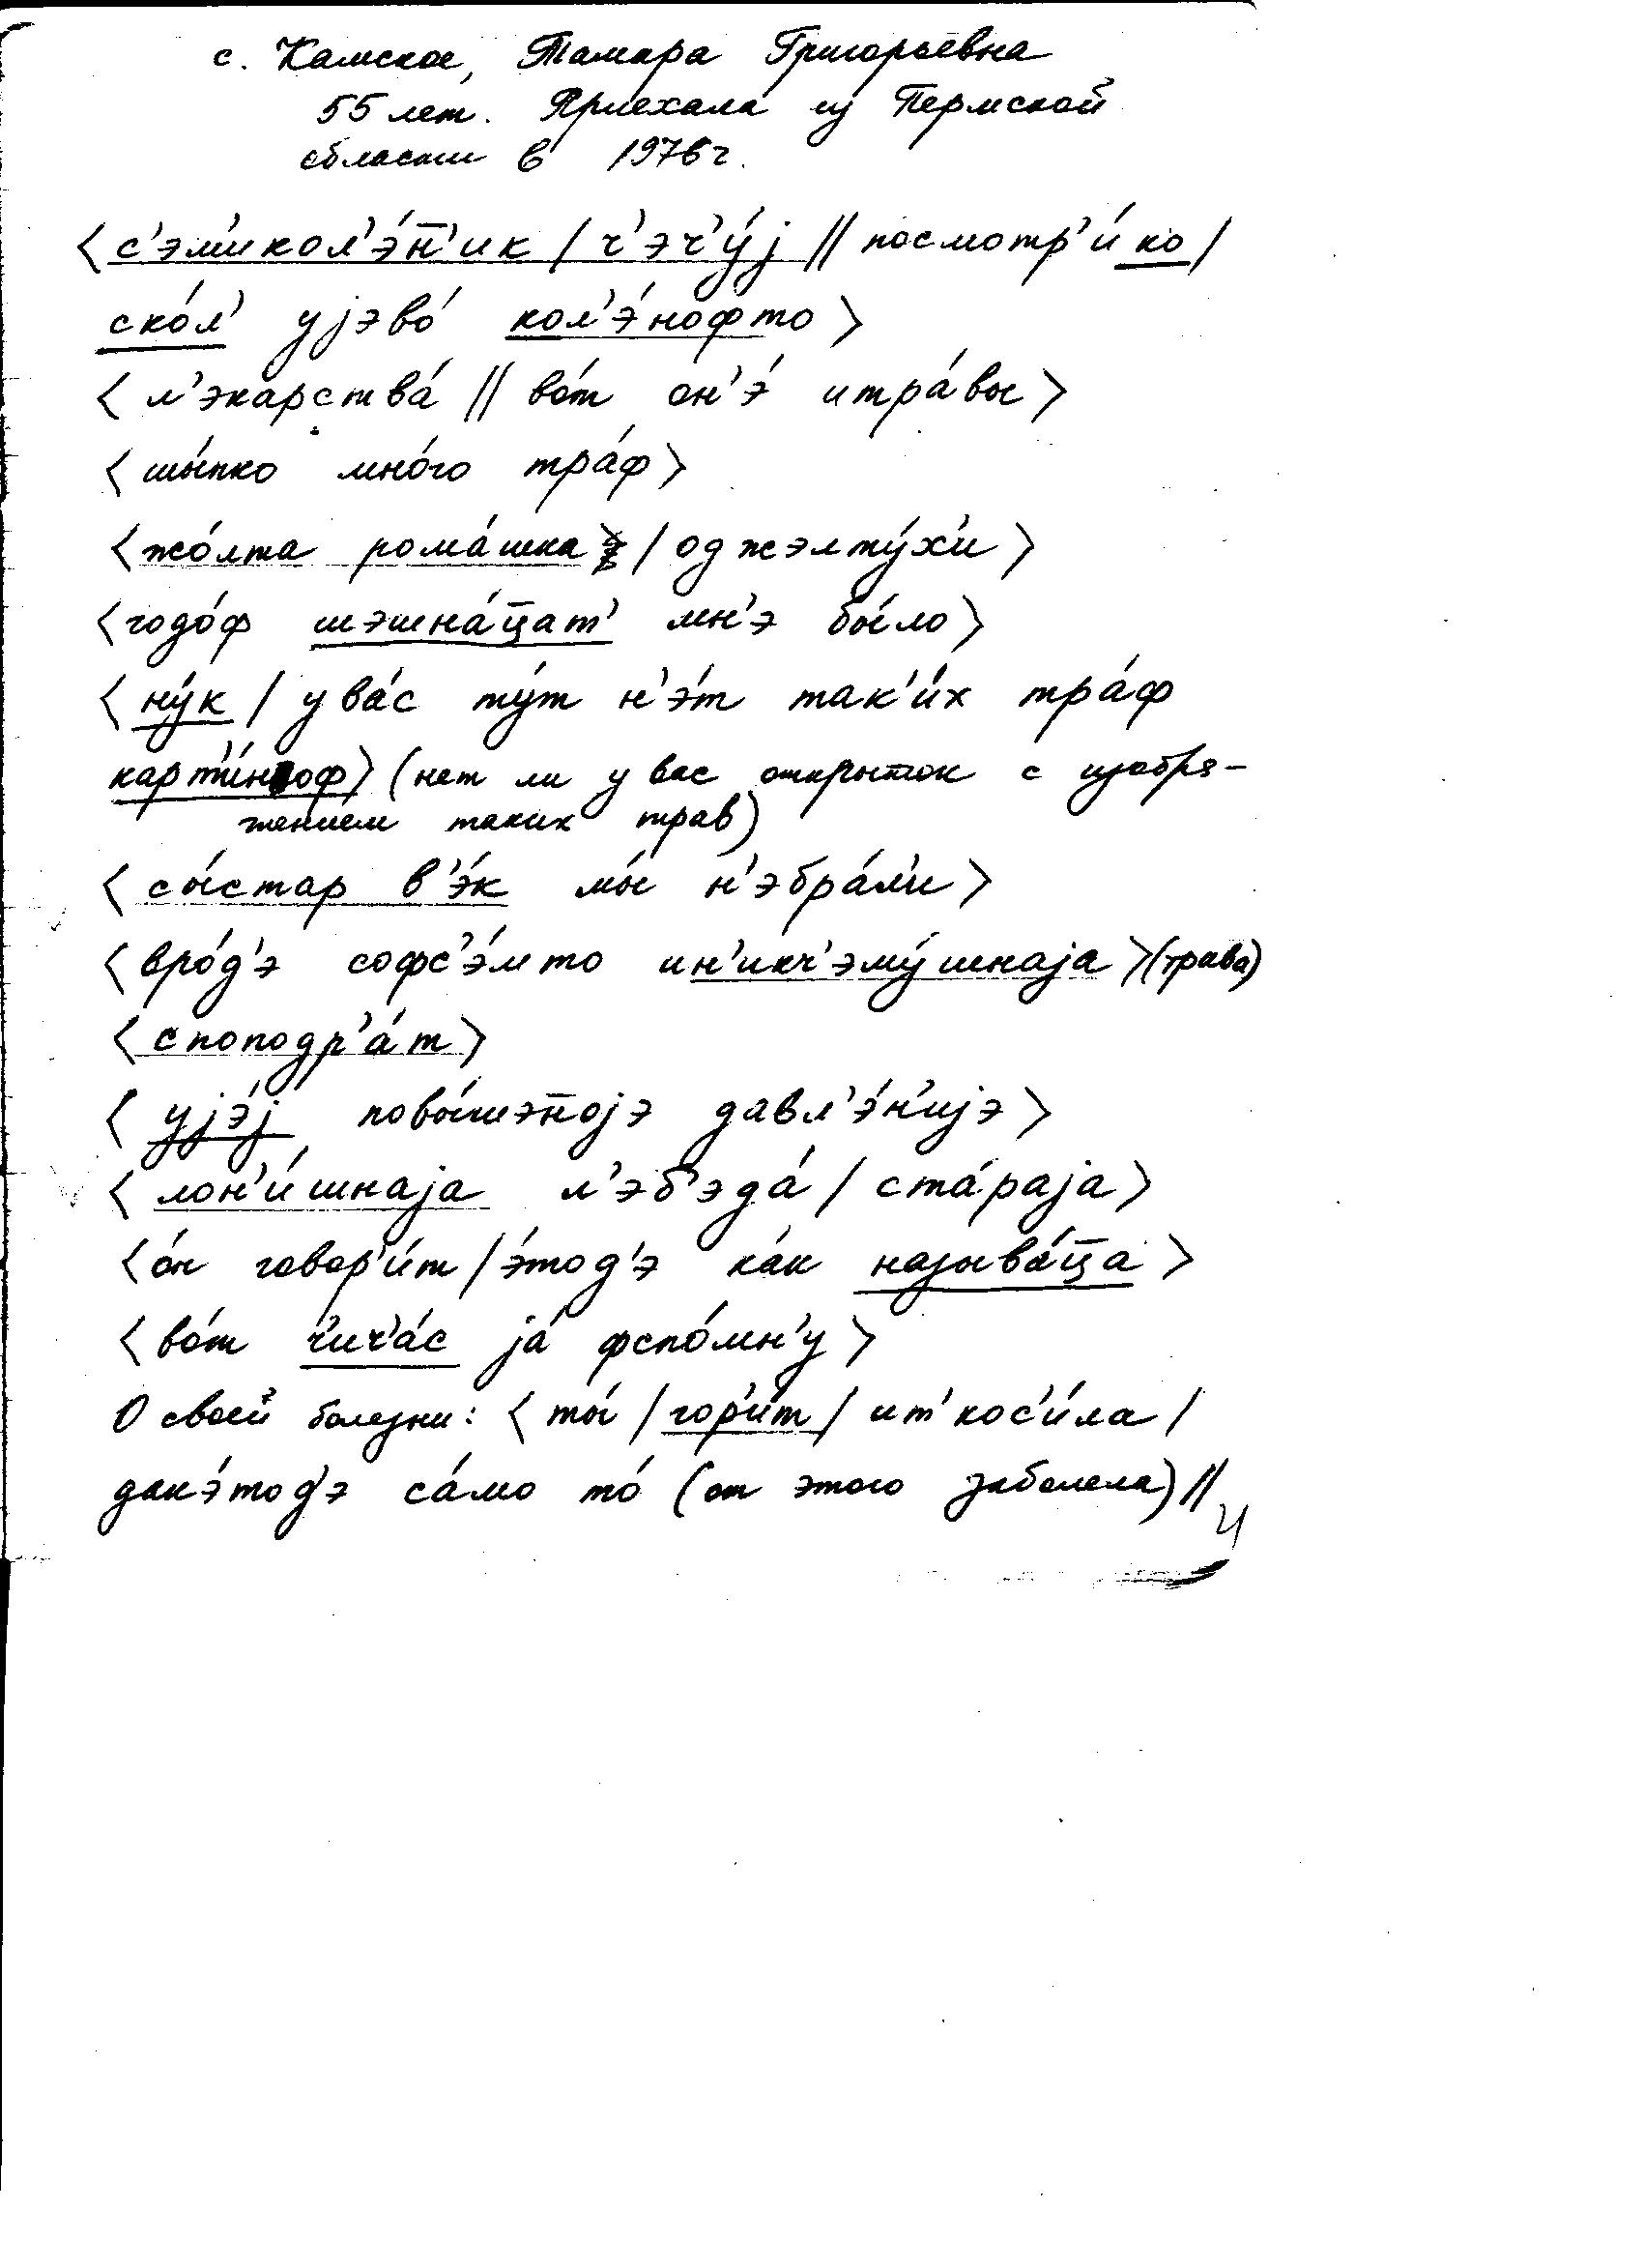 с. Камское, Тамара Григорьевна
55 лет. Приехала из Пермской
области в 1976 г.
<с'эм'икол'э́н̄'ик / ч'эч'у́j // посмотр'и́ ко /
ско́л' уjэво́ кол'э́нофто>
<л'экарства́ // во́т он'э́ итра́вы>
<шы́пко мно́го тра́ф>
<жо́лта рома́шка / оджэлту́х'и>
<годо́ф шэшна́ц̄ат' мн'э бы́ло>
<ну́к / ува́с ту́т н'э́т так'и́х тра́ф
карт'и́ноф> (нет ли у вас открыток с изобра-
жением таких трав)
<сы́стар в'э́к мы́ н'эбра́л'и>
<вро́д'э софс'э́мто ин'икч'эму́шнаjа> (трава)
<споподр'а́т>
<уjэ́j повы́шэн̄оjэ давл'э́н'иjэ>
<лон'и́шнаjа л'эб'эда́ / ста́раjа>
<о́н говор'и́т / э́тод'э ка́к называ́ц̄а>
<во́т ч'ич'а́с jа́ фспо́мн'у>
О своей болезни: <ты́ / гор'и́т / ит' кос'и́ла /
дакэ́тод'э са́мо то́ (от этого заболела) //
4